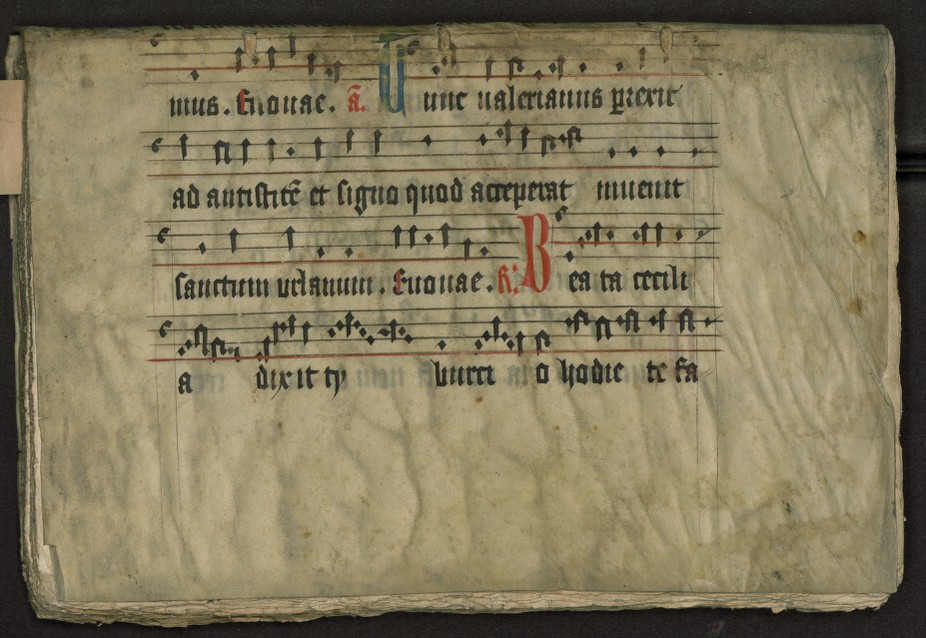 mus. Euouae. a̅. Tunc ualerianus ꝑrexit
ad antistitē et signo quod acceperat inuenit
sanctum urbanum. Euouae. R̸. Bea ta cecili
a dixit ty burci o hodie te fa